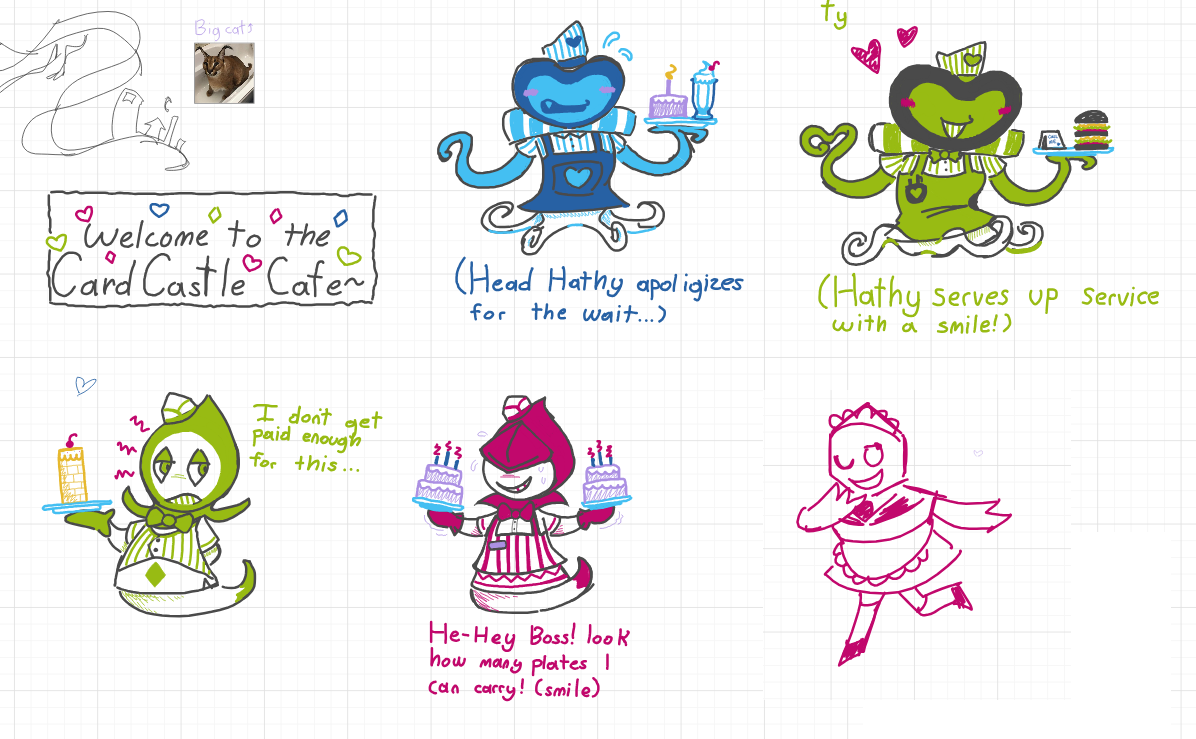 Big cat↑
ty
Welcome to the
Card Castle Cafe~
(Head Hathy apoligizes
for the wait...)
(Hathy serves up service
with a smile!)
I don't get
paid enough
for this...
He-Hey Boss! look
how many plates I
can carry! (smile)